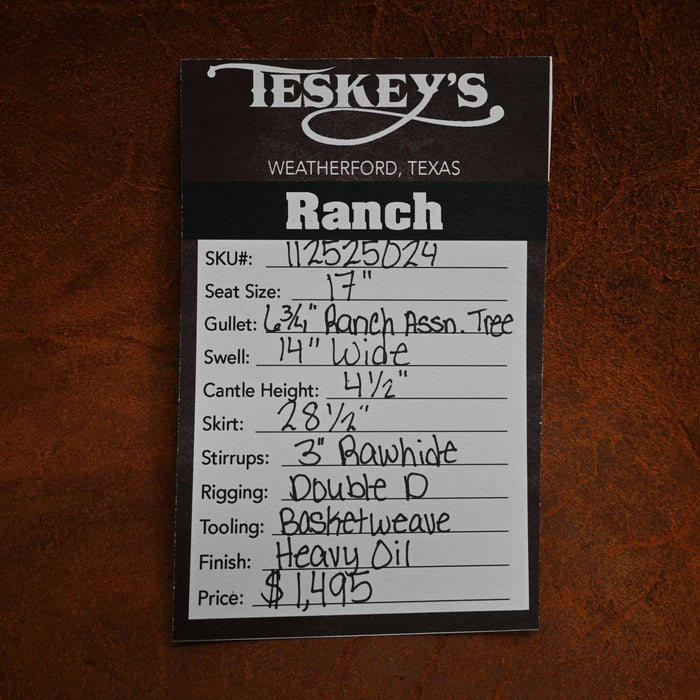 TESKEY'S
WEATHERFORD, TEXAS
Ranch
SKU#: 112525024
Seat Size: 17"
Gullet: 6 3/4" Ranch Assn. Tree
Swell: 14" Wide
Cantle Height: 4 1/2"
Skirt: 28 1/2"
Stirrups: 3" Rawhide
Rigging: Double D
Tooling: Basketweave
Finish: Heavy Oil
Price: $1,495